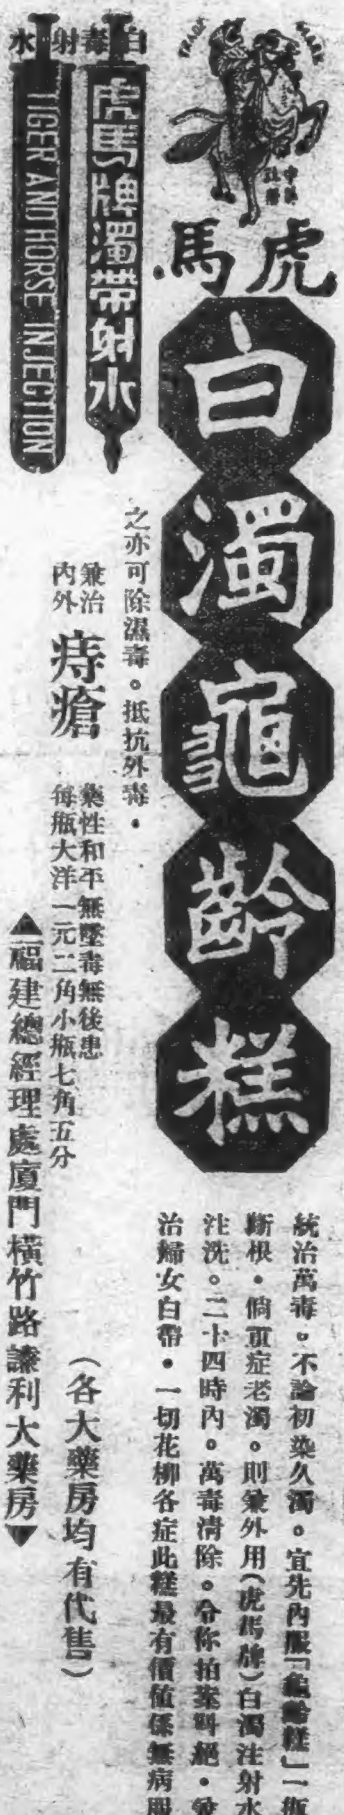 TRADE MARK
虎馬
白濁龜齡糕
統治萬毒。不論初染久濁。宜先內服「龜齡糕」一瓶
斷根。倘重症老濁。則兼外用(虎馬牌)白濁注射水
注洗。二十四時內。萬毒清除。令你拍案叫絕。兼
治婦女白帶。一切花柳各症此糕最有價值係無病服
之亦可除濕毒。抵抗外毒。
白毒射水
虎馬牌濁帶射水
TIGER AND HORSE INJECTION
兼治
內外
痔瘡
藥性和平無墜毒無後患
每瓶大洋一元二角小瓶七角五分
(各大藥房均有代售)
▲福建總經理處廈門橫竹路謙利大藥房▼